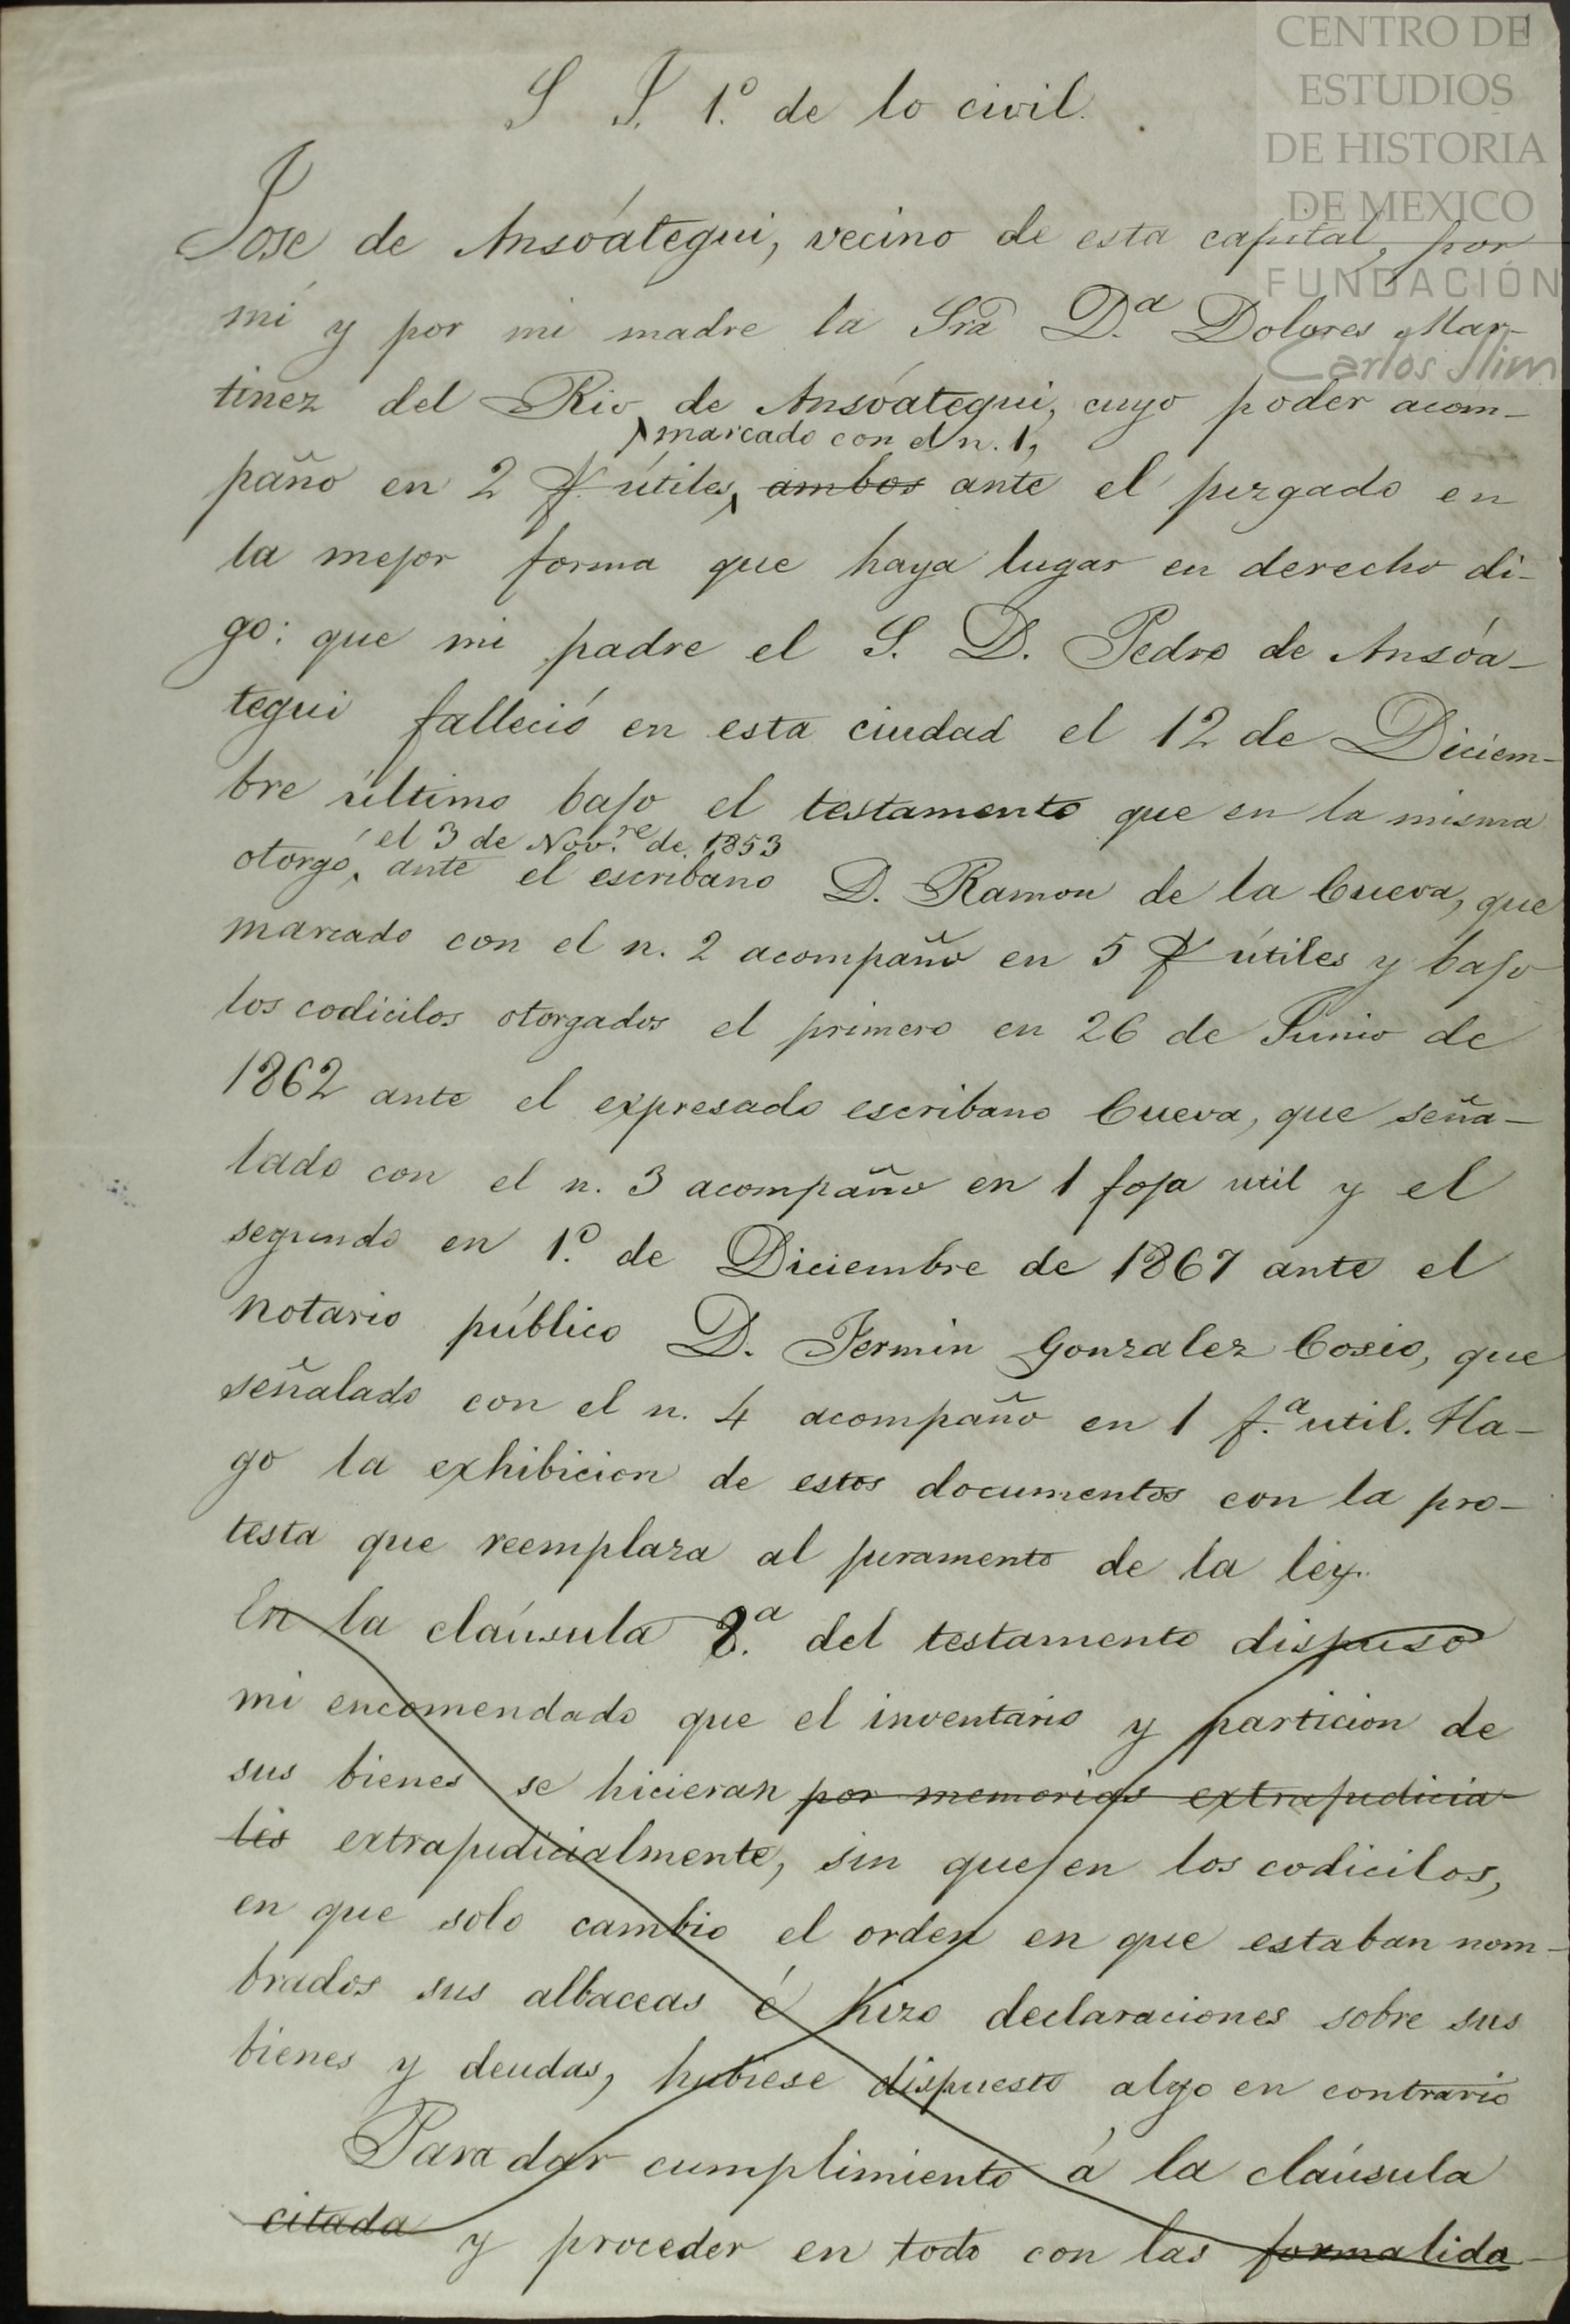 CENTRO DE
ESTUDIOS
DE HISTORIA
DE MEXICO
FUNDACIÓN
Carlos Slim
S J. 1.º de lo civil.
Jose de Ansóategui, vecino de esta capital, por
mí y por mi madre la Sra D.ª Dolores Mar-
tinez del Rio de Ansóategui, cuyo poder acom-
marcado con el n. 1,
paño en 2 f. útiles, ambos ante el juzgado en
la mejor forma que haya lugar en derecho di-
go: que mi padre el S. D. Pedro de Ansóa-
tegui falleció en esta ciudad el 12 de Diciem-
bre último bajo el testamento que en la misma
el 3 de Nov.re de 1853
otorgó, ante el escribano D. Ramon de la Cueva, que
marcado con el n. 2 acompaño en 5 f útiles y bajo
los codicilos otorgados el primero en 26 de Junio de
1862 ante el expresado escribano Cueva, que seña-
lado con el n. 3 acompaño en 1 foja util y el
segundo en 1.º de Diciembre de 1867 ante el
notario público D. Fermin Gonzalez Cosio, que
señalado con el n. 4 acompaño en 1 f.ª util. Ha-
go la exhibicion de estos documentos con la pro-
testa que reemplaza al juramento de la ley.
En la claúsula 8.ª del testamento dispuso
mi encomendado que el inventario y particion de
sus bienes se hicieran por memorias extrajudicia-
les extrajudicialmente, sin que en los codicilos,
en que solo cambio el orden en que estaban nom-
brados sus albaceas é hizo declaraciones sobre sus
bienes y deudas, hubiese dispuesto algo en contrario
Para dar cumplimiento á la claúsula
citada y proceder en todo con las formalida-